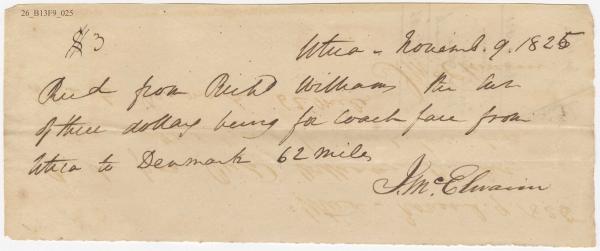 26_B13F9_025
$3
Utica - Novemb. 9. 1825
Recd from Richd Williams the sum
of three dollars being for Coach fare from
Utica to Denmark 62 miles
J. McElwain